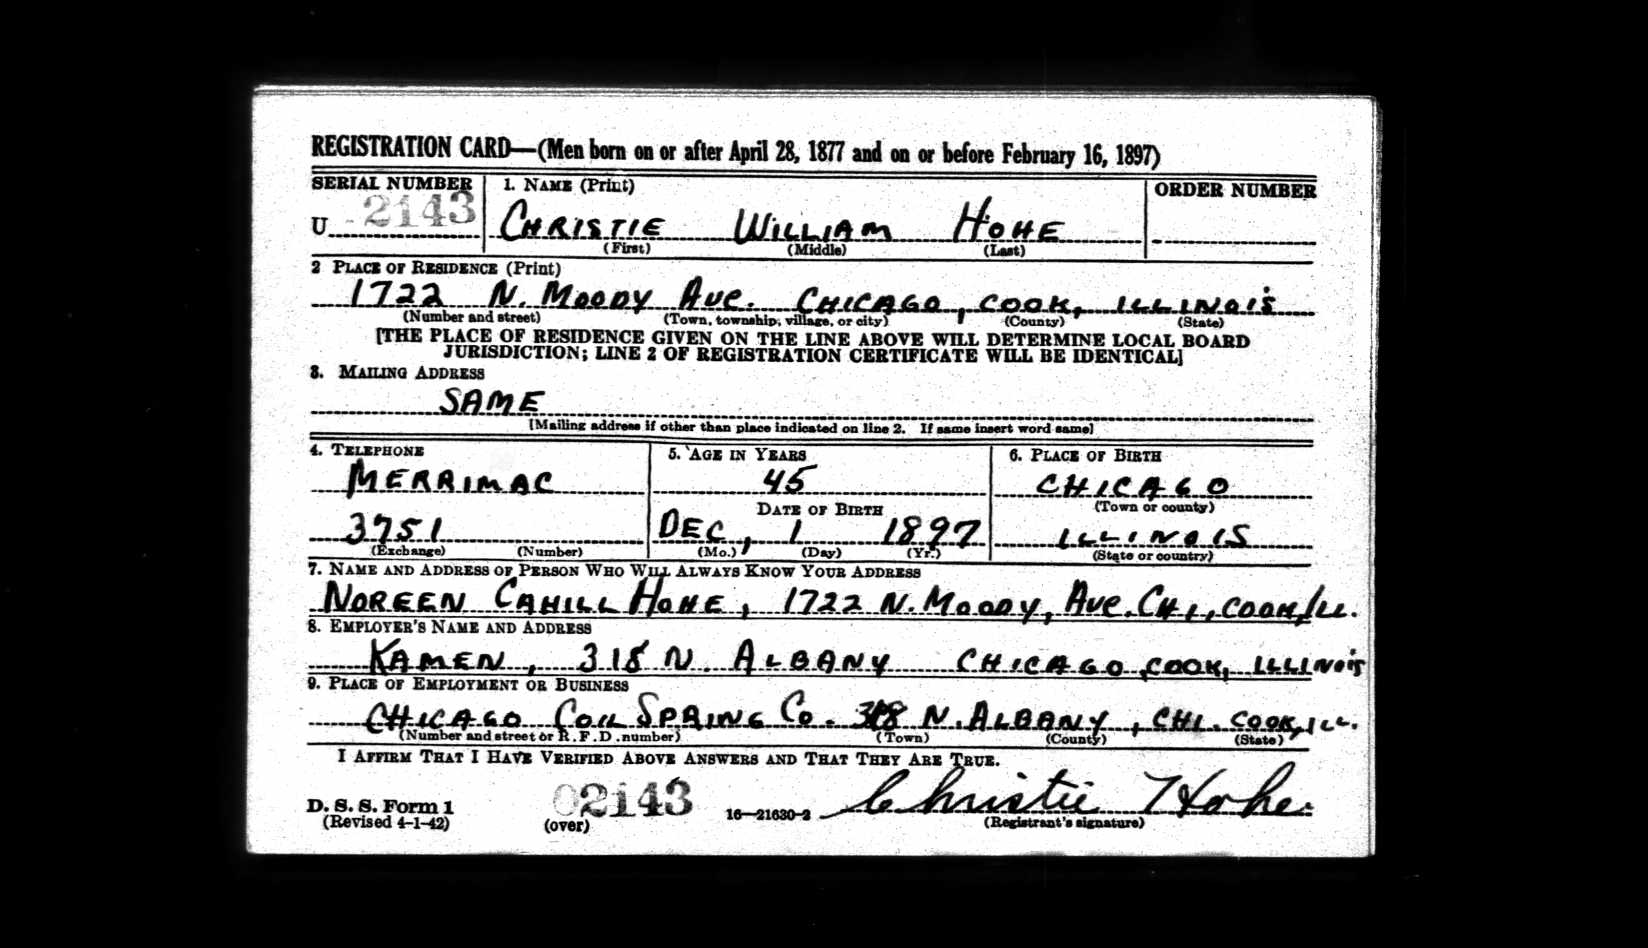 REGISTRATION CARD—(Men born on or after April 28, 1877 and on or before February 16, 1897)
SERIAL NUMBER 1. NAME (Print) ORDER NUMBER
U 2143 CHRISTIE WILLIAM HOHE
(First) (Middle) (Last)
2 PLACE OF RESIDENCE (Print)
1722 N. MOODY AVE. CHICAGO, COOK, ILLINOIS
(Number and street) (Town, township, village, or city) (County) (State)
[THE PLACE OF RESIDENCE GIVEN ON THE LINE ABOVE WILL DETERMINE LOCAL BOARD
JURISDICTION; LINE 2 OF REGISTRATION CERTIFICATE WILL BE IDENTICAL]
3. MAILING ADDRESS
SAME
[Mailing address if other than place indicated on line 2. If same insert word same]
4. TELEPHONE 5. AGE IN YEARS 6. PLACE OF BIRTH
MERRIMAC 45 CHICAGO
DATE OF BIRTH (Town or county)
3751 DEC, 1 1897 ILLINOIS
(Exchange) (Number) (Mo.) (Day) (Yr.) (State or country)
7. NAME AND ADDRESS OF PERSON WHO WILL ALWAYS KNOW YOUR ADDRESS
NOREEN CAHILL HOHE, 1722 N. MOODY, AVE. CHI, COOK, ILL.
8. EMPLOYER'S NAME AND ADDRESS
KAMEN, 318 N ALBANY CHICAGO, COOK, ILLINOIS
9. PLACE OF EMPLOYMENT OR BUSINESS
CHICAGO COIL SPRING CO. 318 N. ALBANY, CHI. COOK, ILL.
(Number and street or R. F. D. number) (Town) (County) (State)
I AFFIRM THAT I HAVE VERIFIED ABOVE ANSWERS AND THAT THEY ARE TRUE.
D. S. S. Form 1 02143 16—21630-2 Christie Hohe
(Revised 4-1-42) (over) (Registrant's signature)